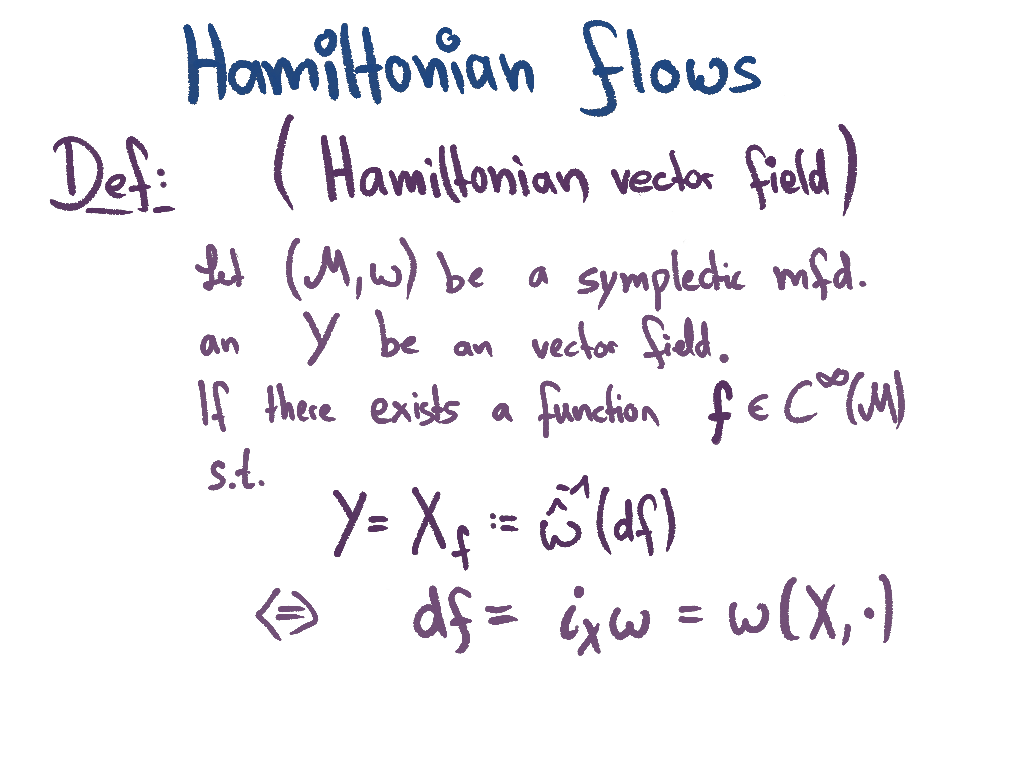 Hamiltonian flows
Def: (Hamiltonian vector field)
Let (M, ω) be a symplectic mfd.
an Y be an vector field.
If there exists a function f ∈ C^∞(M)
s.t.
Y = X_f := ω̂^{-1}(df)
<=> df = i_X ω = ω(X, ·)